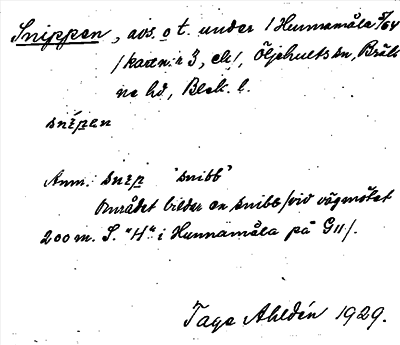 Snippen, avs. o t. under 1 Hunnamåla 5/64
/karta nr 3, ek/, Öljehults sn, Bräk-
ne hd, Blek. l.
snipen
Anm.: snip 'snibb'
Området bildar en snibb /vid vägmötet
200 m. S. "H" i Hunnamåla på G11/.
Tage Ahldén 1929.